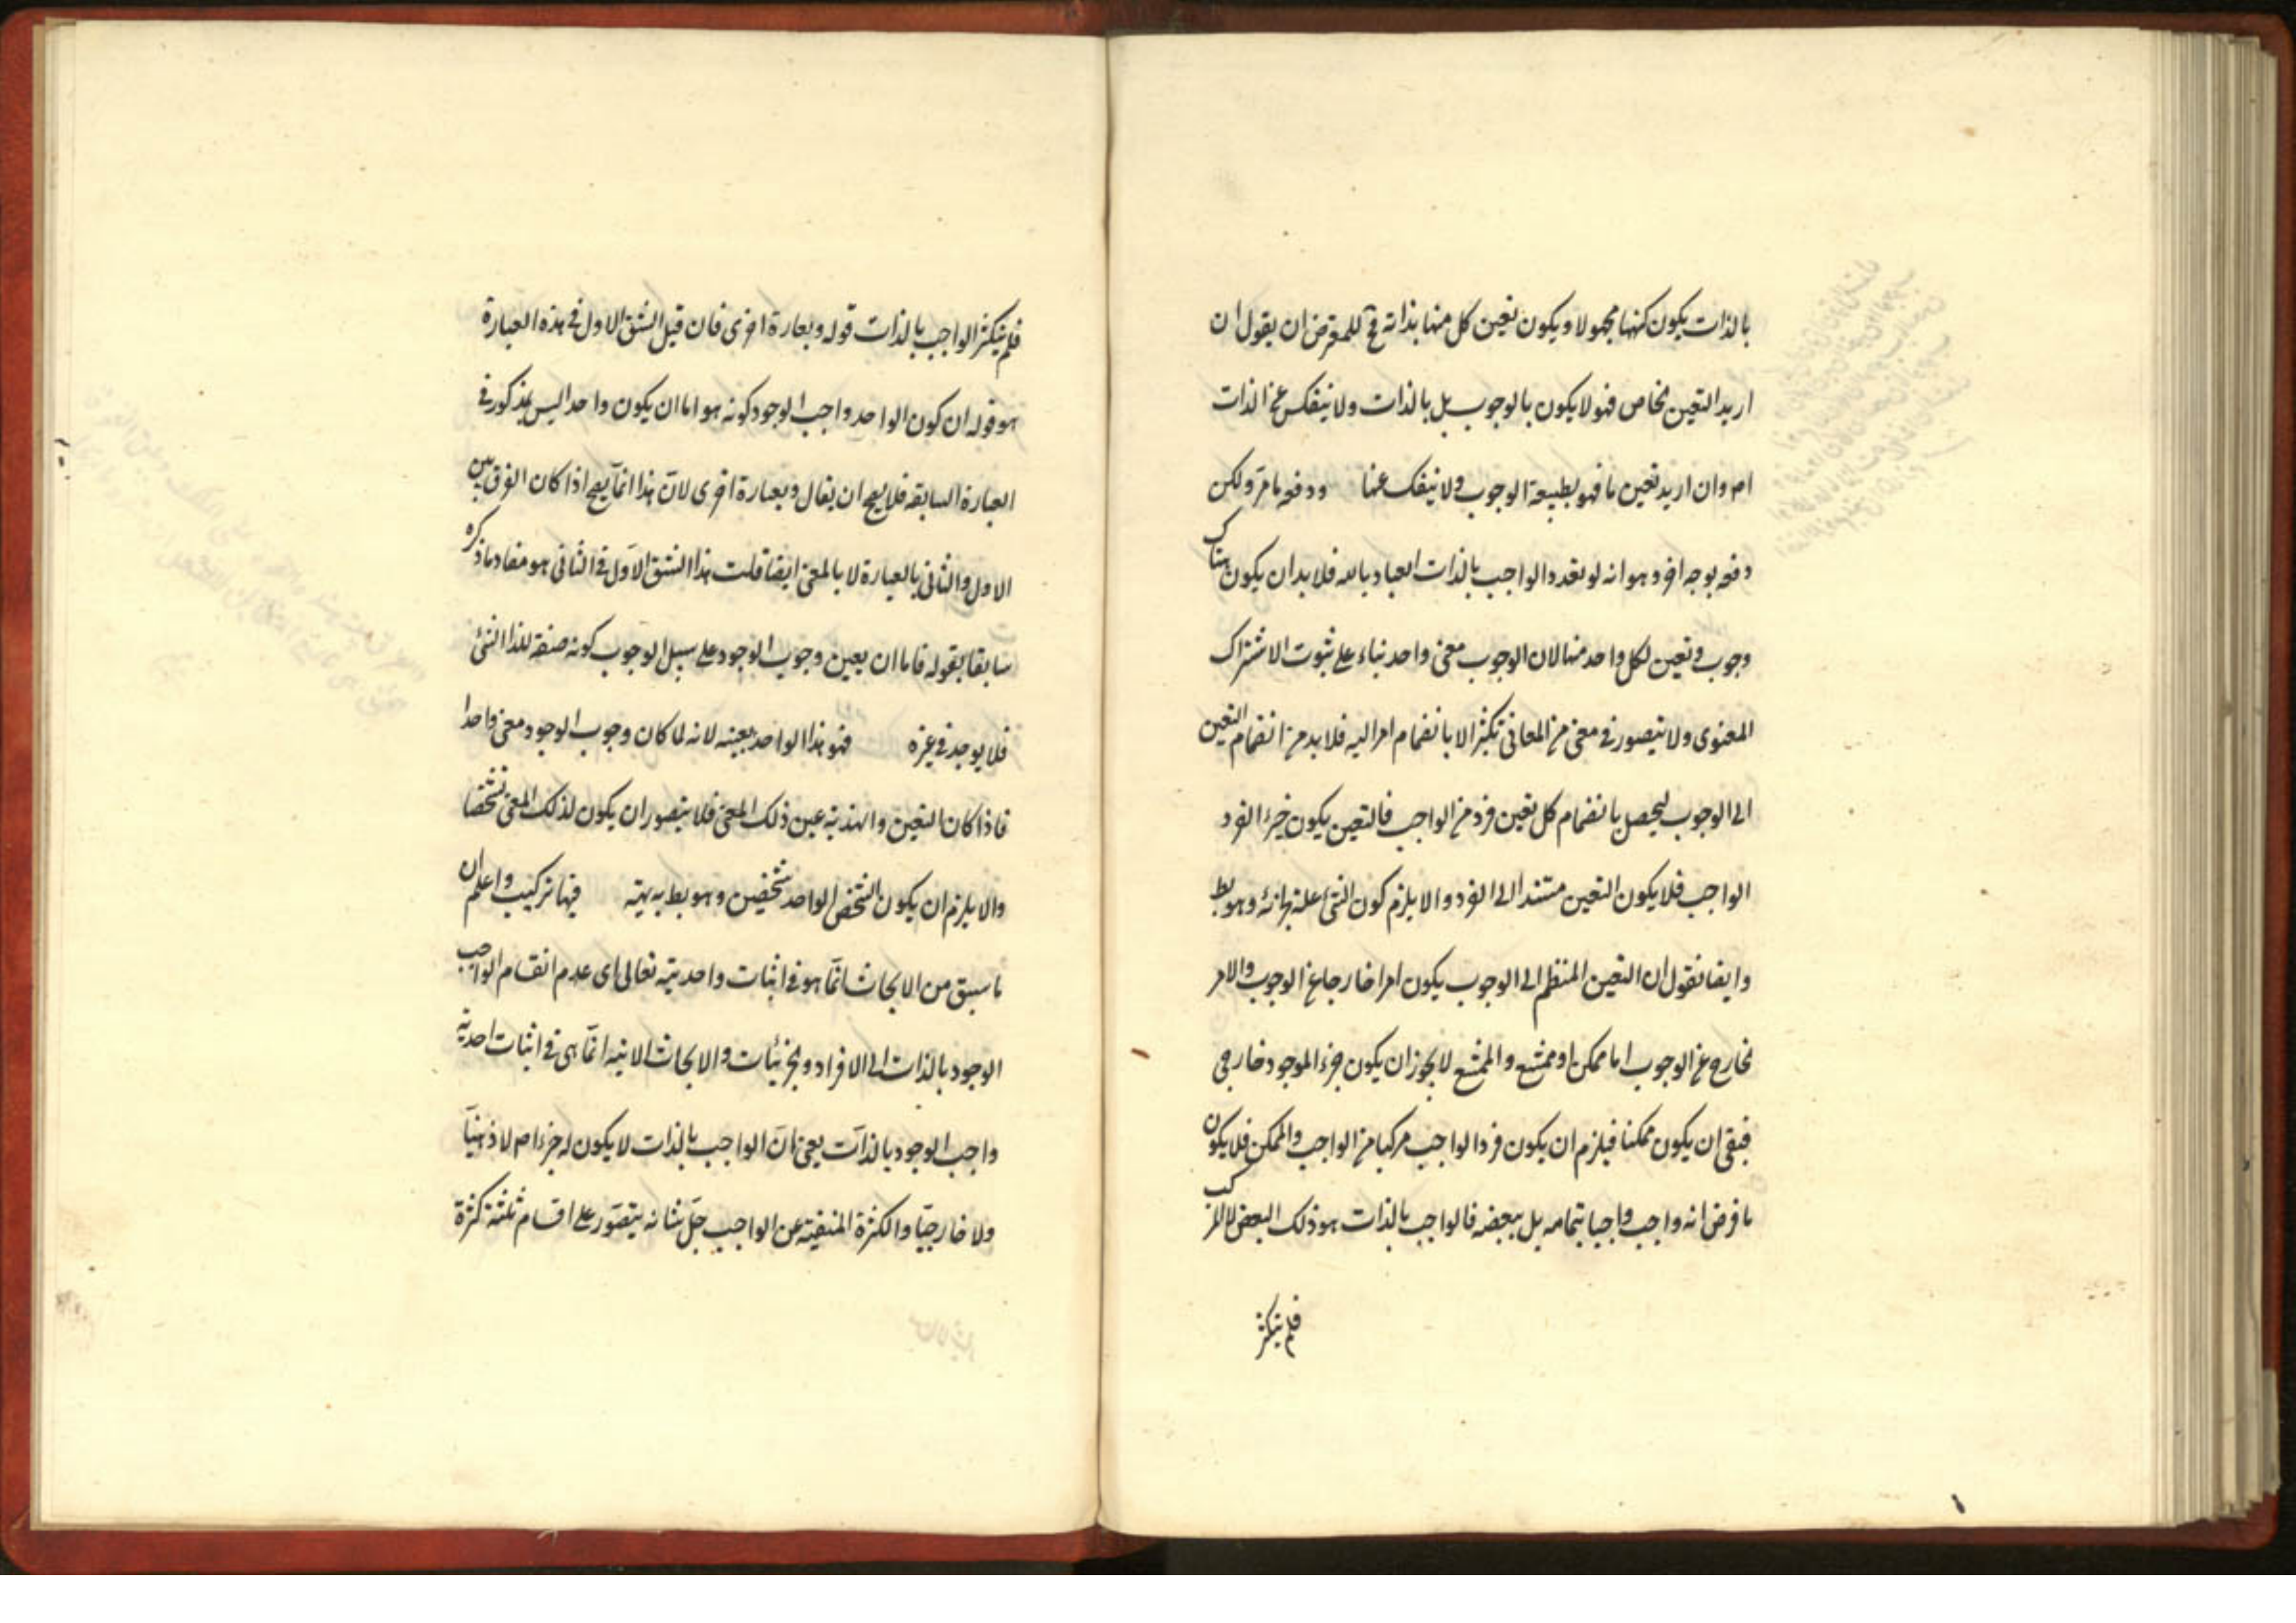 بالذات يكون كنهها مجهولا و يكون تعين كل منها بذاته فح للمعترض ان يقول ان
اريد التعين الخاص فهو لا يكون بالوجوب بل بالذات ولا ينفكس عن الذات
ام وان اريد تعين ما فهو بطبيعة الوجوب ولا ينفك عنها ودفعه ما مر ولكن
دفعه بوجه اخر و هو انه لو تعدد الواجب بالذات العياد بالله فلا بد ان يكون هناك
وجوب و تعين لكل واحد منها لان الوجوب معنى واحد بناء على ثبوت الاشتراك
المعنوى ولا يتصور فى معنى من المعانى تكثر الا بانضمام امر اليه فلا بد من انضمام التعين
الى الوجوب ليحصل بانضمام كل تعين فرد من الواجب فالتعين يكون جزء الفرد
الواجب فلا يكون التعين مستندا الى الفرد والا يلزم كون الشئ علة لجزئه وهو بط
وايضا نقول ان التعين المنظم الى الوجوب يكون امرا خارجا عن الوجوب والامر
الخارج عن الوجوب اما ممكن او ممتنع و الممتنع لا يجوز ان يكون جزء الموجود خارجى
فبقى ان يكون ممكنا فيلزم ان يكون فرد الواجب مركبا من الواجب والممكن فلا يكون
ما فرض انه واجب واجبا بتمامه بل ببعضه فالواجب بالذات هو ذلك البعض لا المركب
فلم يتكثر
فلم يتكثر الواجب بالذات قوله و بعبارة اخرى فان قيل الشق الاول فى هذه العبارة
هو قوله ان كون الواحد واجب الوجود كونه هو اما ان يكون واحدا ليس بمذكور فى
العبارة السابقه فلا يصح ان يقال و بعبارة اخرى لان هذا انما يصح اذا كان الفرق بين
الاول والثانى بالعبارة لا بالمعنى ايضا قلت هذا الشق الاول فى الثانى هو مفاد ما ذكره
سابقا بقوله فاما ان يعين وجوب الوجود على سبيل الوجوب كونه صفة لهذا الشئ
فلا يوجد فى غيره فهو هذا الواحد بعينه لانه لما كان وجوب الوجود معنى واحدا
فاذا كان التعين والهذية عين ذلك المعنى فلا يتصور ان يكون لذلك المعنى تشخصا
والا يلزم ان يكون الشخص الواحد شخصين وهو بط بديهته فيها تركيب و اعلم ان
ما سبق من الابحاث انما هو فى اثبات واحديته تعالى اى عدم انقسام الواجب
الوجود بالذات الى الافراد و الجزئيات والابحاث الاتيه انما هى فى اثبات احديه
واجب الوجود بالذات يعنى ان الواجب بالذات لا يكون له جزء ام لا ذهنيا
ولا خارجيا والكثرة المنفية عن الواجب جل شانه يتصور على اقسام ثلثة كثرة